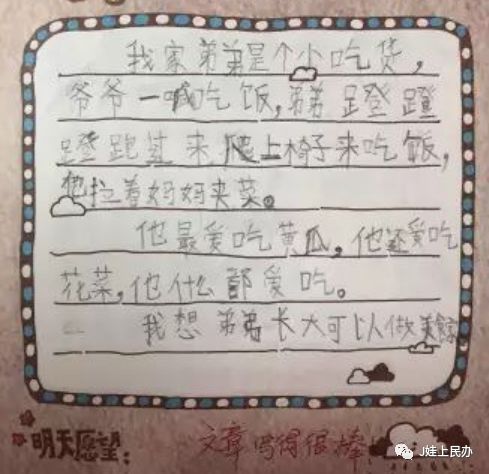 我家弟弟是个小吃货，
爷爷一喊吃饭，弟弟蹬蹬
蹬跑过来爬上椅子来吃饭，
他拉着妈妈夹菜。
他最爱吃黄瓜，他还爱吃
花菜，他什么都爱吃。
我想弟弟长大可以做美食家
明天愿望：
文章写得很棒
J娃上民办